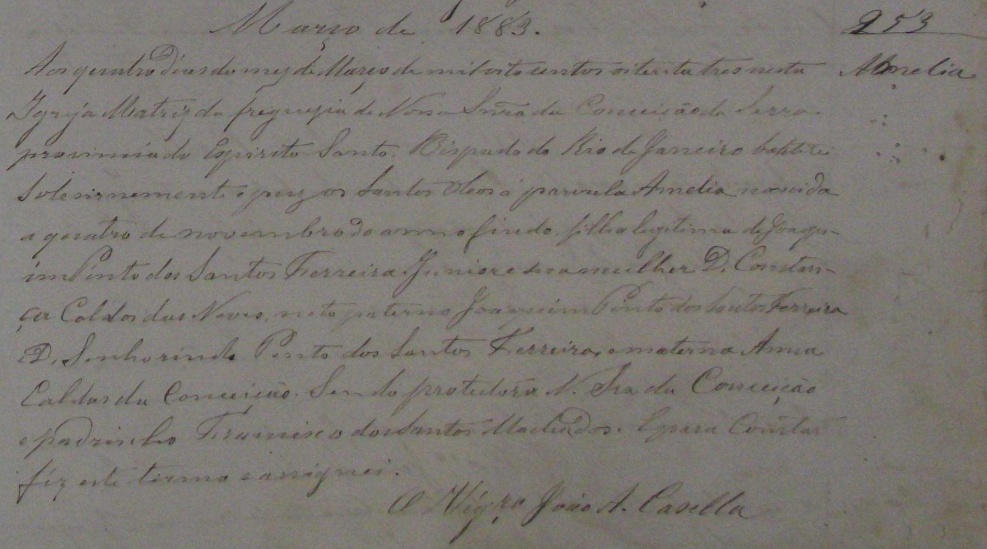 Março de 1883.
953
Aos quatro dias do mez de Março de mil oito centos oitenta tres nesta
Amelia
Igreja Matriz da freguezia de Nossa Snrã da Conceição da Serra
provincia do Espirito Santo, Bispado do Rio de Janeiro baptizei
solemnemente e puz os Santos Oleos á parvula Amelia nascida
a quatro de novembro do anno findo, filha legitima de Joaqu-
im Pinto dos Santos Ferreira Junior e sua mulher D. Constan-
ça Caldas das Neves, neto paterno Joaquim Pinto dos Santos Ferreira
e D. Senhorinda Pinto dos Santos Ferreira, e materna Anna
Caldas da Conceição. Sendo protectora N. Sra da Conceição
e padrinho Francisco dos Santos Machados. E para Constar
fiz este termo e assignei.
O Vigro João A. Casella